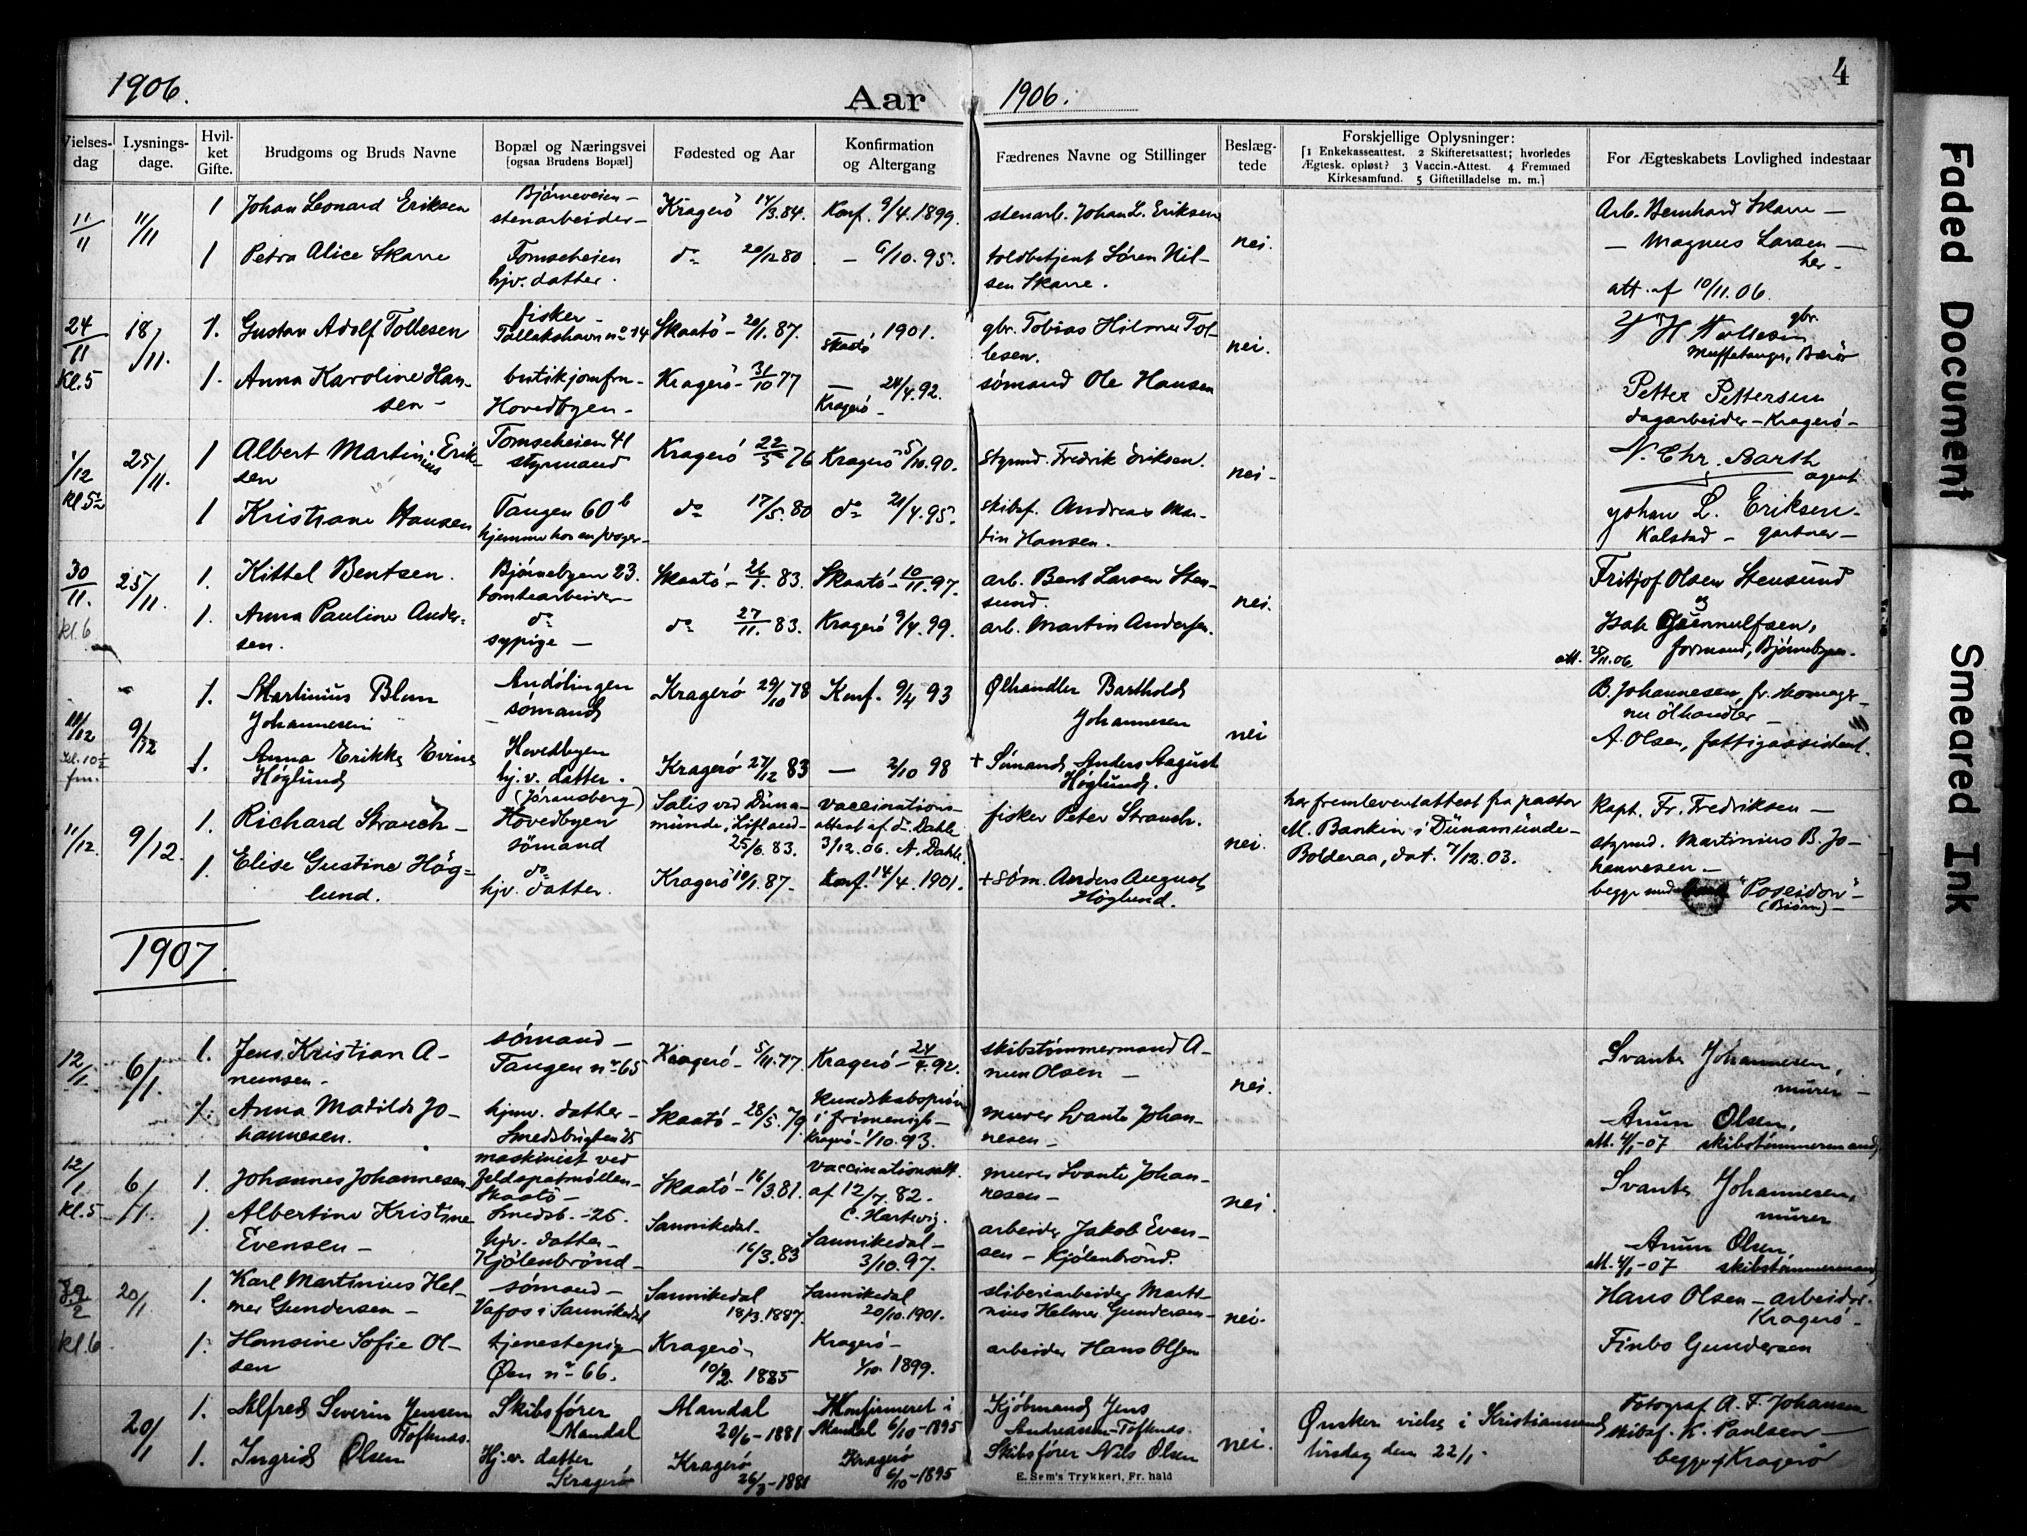 1906.
Aar
1906.
4
Vielses-
dag
Lysnings-
dage.
Hvil-
ket
Gifte.
Brudgoms og Bruds Navne
Bopæl og Næringsvei
[ogsaa Brudens Bopæl]
Fødested og Aar
Konfirmation
og Altergang
Fædrenes Navne og Stillinger
Beslæg-
tede
Forskjellige Oplysninger:
[1 Enkekasseattest. 2 Skifteretsattest; hvorledes
Ægtesk. opløst? 3 Vaccin.-Attest. 4 Fremmed
Kirkesamfund. 5 Giftetilladelse m. m.]
For Ægteskabets Lovlighed indestaar
11/11
11/11
1 Johan Leonard Eriksen
Bjørneveien -
stenarbeider -
Kragerö 14/3.84.
Konf. 9/4.1899.
stenarb. Johan L. Eriksen
nei.
Arb. Bernhard Skarre -
- Magnus Larsen -
her -
att. af 10/11.06.
1 Petra Alice Skarre
Tomseheien
hjv. datter.
do 20/12 80
- 6/10.95.
toldbetjent Søren Nil-
sen Skarre.
24/11
Kl. 5
18/11.
1. Gustav Adolf Tollesen
fisker -
no 14
Skaatö - 20/1.87.
- 1901.
Skaatö
gbr. Tobias Hilmer Tol-
lesen.
nei.
gbr.
1. Anna Karoline Han-
sen -
butikjomfru -
Hovedbyen -
Kragerö - 31/10 77
- 24/4.92.
Kragerö -
sømand Ole Hansen
Petter Pettersen
dagarbeider - Kragerö -
1/12
25/11.
1 Albert Martinius Erik-
sen
Tomseheien 41
styrmand
Kragerö 22/5 76
Kragerö 5/10.90.
styrmd. Fredrik Eriksen.
nei -
N. Chr. Barth
agent
1 Kristiane Hansen
Tangen 60 b
do 17/5.80
do 21/4.95.
skibsf. Andreas Mar-
tin Hansen.
Johan L. Eriksen -
Kalstad - gartner -
30/11.
kl. 6
25/11.
1. Kittel Bentsen.
Bjørnebyen 23.
tomtearbeider -
Skaatö - 26/1.83.
Skaatö - 10/11.97.
arb. Bent Larsen Sten-
sund.
nei.
Fritjof Olsen Stensund
og
1. Anna Pauline Ander-
sen.
do
sypige -
do 27/11.83.
Kragerö 9/4.99.
arb. Martin Andersen.
Isak Gunnulfsen,
formand, Bjørnebyen.
11/12
kl. 10½
fm.
9/12
1. Martinius Blum
Johannesen
Andölingen
sømand
Kragerö 29/10 78
Konf. 9/4 93
Ølhandler Barthold
Johannesen
nei
B. Johannesen,
ølhandler -
A. Olsen, fattigassistent.
1. Anna Erikke Evine
Höglund
Hovedbyen
hj.v. datter.
Kragerö 27/12 83
- 2/10 98
+ Sømand Anders August
Höglund.
11/12.
9/12.
1. Richard Strauch -
(Jøransberg)
Hovedbyen
sømand
Salis ved Düna-
münde, Lifland -
25/6.83.
vaccinations-
attest af dr. Dahle
3/12.06. A. Dahle.
fisker Peter Strauch.
nei.
har fremlevert attest fra pastor
M. Bankin i Dünamünde -
Bolderaa, dat. 7/12.03.
Kapt. Fr. Fredriksen -
styrmd. Martinius B. Jo-
hannesen -
begge med "Poseidon" -
(Biörn) -
1. Elise Gustine Hög-
lund.
do
hjv. datter.
Kragerö 10/1.87.
Konf. 14/4.1901.
+ søm. Anders August
Höglund.
1907.
12/1
6/1.
1. Jens Kristian A-
nunsen -
sømand -
Tangen no 65
Kragerö - 5/11.77.
Kragerö - 24/4.92.
skibstømmermand A-
nun Olsen -
nei.
Svante Johannesen,
murer -
1. Anna Matilde Jo-
hannesen.
hjmv. datter -
Smedsbugten 25
Skaatö - 28/5.79.
kundskabsprøve
i frimenigh. -
Kragerö - 1/10.93.
murer Svante Johan-
nesen -
Anun Olsen,
att. 4/1-07 skibstømmermand,
12/1
kl. 5
6/1.
1. Johannes Johannesen
maskinist ved
Feldspatmøllen -
Skaatö -
Smedsb. - 25.
Skaatö - 16/3.81.
vaccinationsatt.
af 12/7.82.
C. Hartvig.
murer Svante Johan-
nesen -
nei.
Svante Johannesen,
murer
1. Albertine Kristine
Evensen -
hjv. datter -
Kjølenbrönd -
Sannikedal.
16/3.83
Sannikedal -
3/10.97.
arbeider Jakob Even-
sen - Kjølenbrönd.
Anun Olsen,
att. 4/1-07 skibstømmermand,
kl. 6
20/1
1. Karl Martinius Hel-
mer Gundersen -
sømand -
Vafos i Sannikedal
Sannikedal
18/3.1887.
Sannikedal
20/10.1901.
sliberiarbeider Marti-
nius Helmer Gundersen -
nei.
Hans Olsen - arbeider.
Kragerö -
1. Hansine Sofie Ol-
sen
tjenestepige
Øen no 66.
Kragerö -
10/2. 1885
Kragerö -
1/10. 1899.
arbeider Hans Olsen
Finbo Gundersen
20/1
1. Alfred Severin Jensen
Tofknas.
Skibsfører
Mandal
Mandal
20/6-1881
Konfirmeret i
Mandal 6/10-1895
Kjøbmand Jens
Andreassen-Tofknas.
nei.
Ønsker vielse i Kristianssand
tirsdag den 22/1.
Fotograf A. F. Johansen
skibsf. K. Paulsen -
begge af Kragerö
1. Ingrid Olsen
Hj.v. datter
Kragerö
Kragerö
26/3-1881
Kragerö
6/10-1895
Skibsfører Nils Olsen
E. Sem's Trykkeri, Fr.hald
Faded Document
Smeared Ink